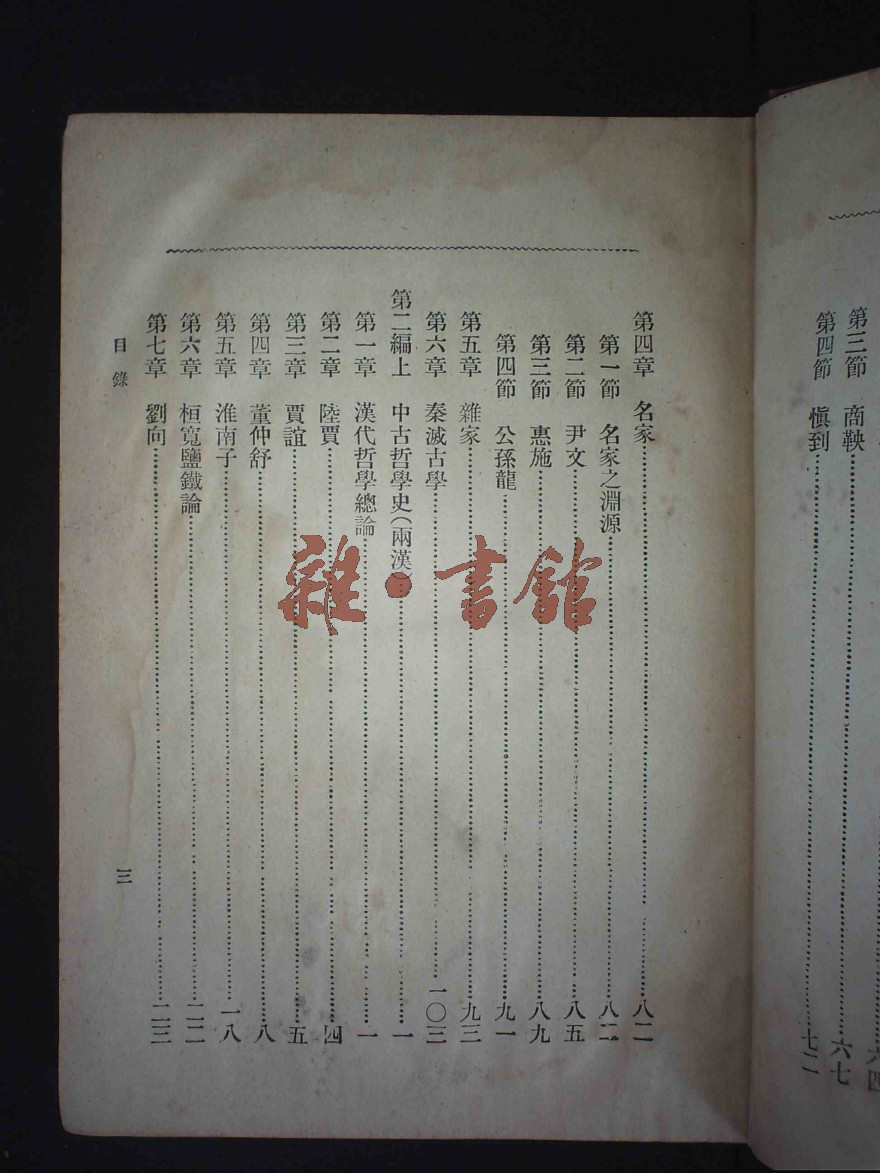 第三節 商鞅……六七
第四節 愼到……七二
第四章 名家……八二
第一節 名家之淵源……八二
第二節 尹文……八五
第三節 惠施……八九
第四節 公孫龍……九一
第五章 雜家……九三
第六章 秦滅古學……一〇三
第二編上 中古哲學史(兩漢)……一
第一章 漢代哲學總論……一
第二章 陸賈……四
第三章 賈誼……五
第四章 董仲舒……八
第五章 淮南子……一八
第六章 桓寬鹽鐵論……二二
第七章 劉向……二三
目錄 三
雜·書館